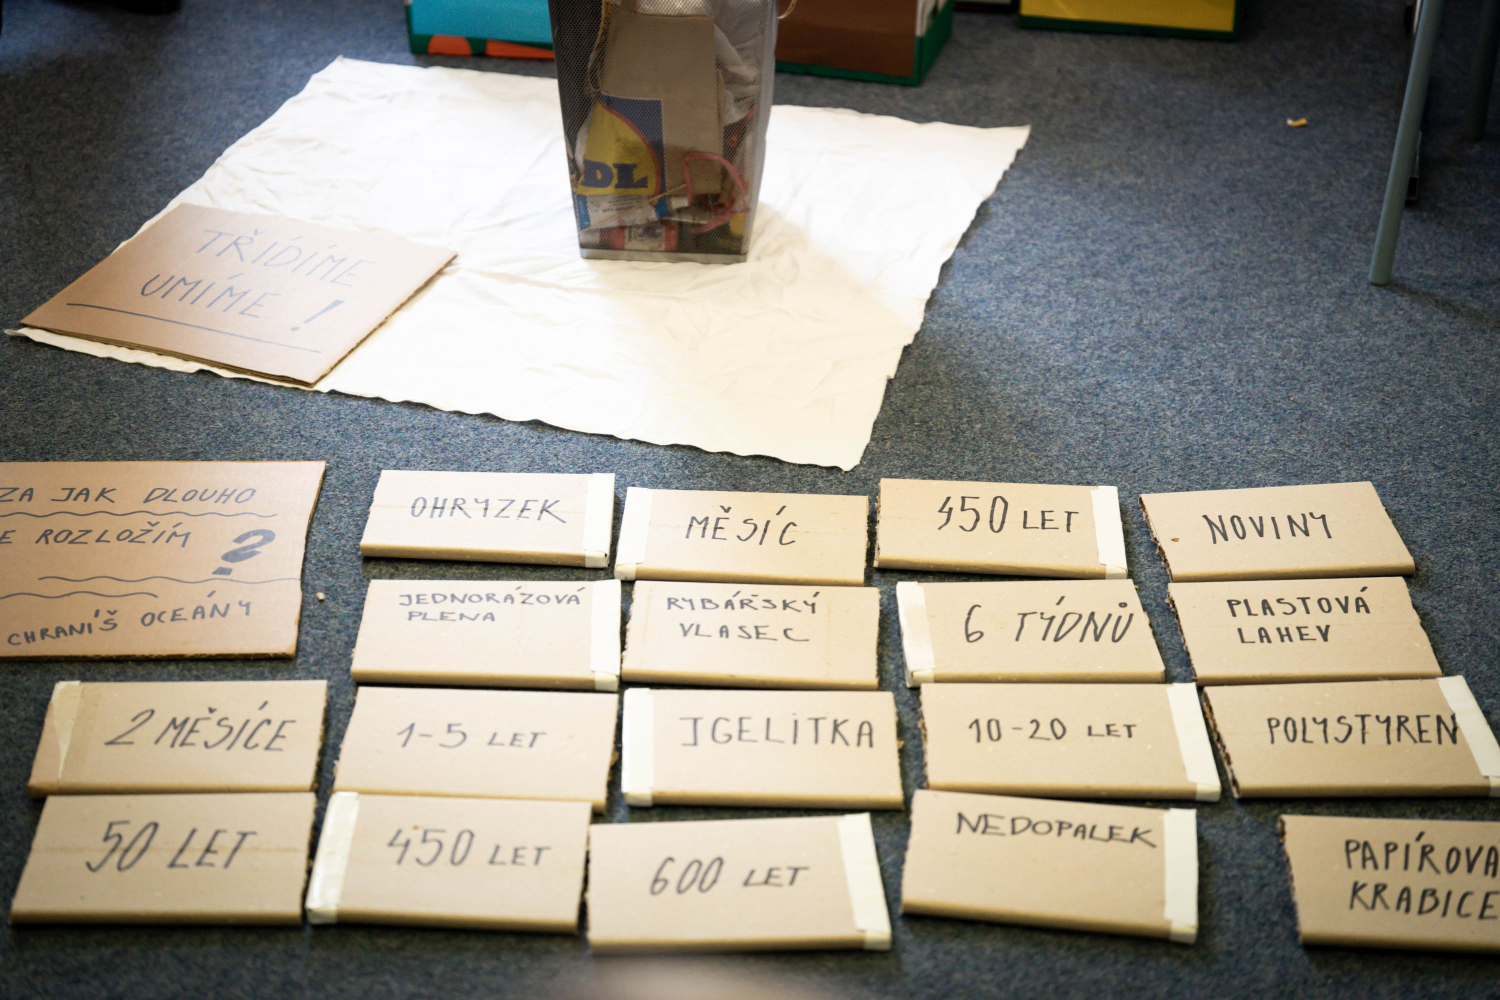 DL
TŘÍDÍME
UMÍME !
ZA JAK DLOUHO
E ROZLOŽÍM
?
CHRANÍŠ OCEÁNY
OHRYZEK
MĚSÍC
450 LET
NOVINY
JEDNORÁZOVÁ
PLENA
RYBÁŘSKÝ
VLASEC
6 TÝDNŮ
PLASTOVÁ
LAHEV
2 MĚSÍCE
1-5 LET
IGELITKA
10-20 LET
POLYSTYREN
50 LET
450 LET
600 LET
NEDOPALEK
PAPÍROVA
KRABICE